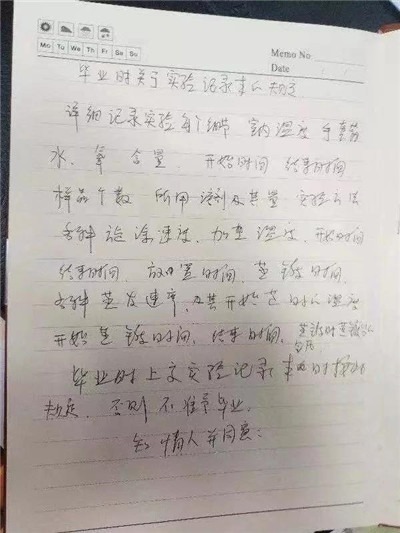 Mo Tu We Th Fr Sa Su
Memo No.
Date
毕业时关于实验记录本的规定
详细记录实验每个细节 室内温度 手套箱
水、氧 含量 开始时间 结束时间
样品个数 所用溶剂及其量 实验方法
各种旋涂速度、加热温度、开始时间
结束时间、放置时间、蒸镀时间、
各种蒸发速率、及其开始蒸时的温度
开始蒸镀时间、结束时间、蒸镀时蒸镀
毕业时上交实验记录本时按此
规定、否则不准予毕业。
知情人并同意: